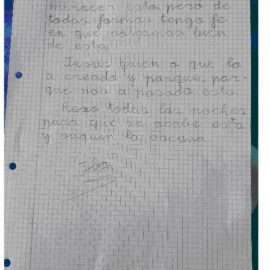 merecer esto, pero de
todas formas tengo fe
en que salgamos bien
de esta.
Deseo quien o que lo
a creado y porque, por-
que nos a pasado esto.
Rezo todas las noches
para que se acabe esta
y saquen la vacuna.